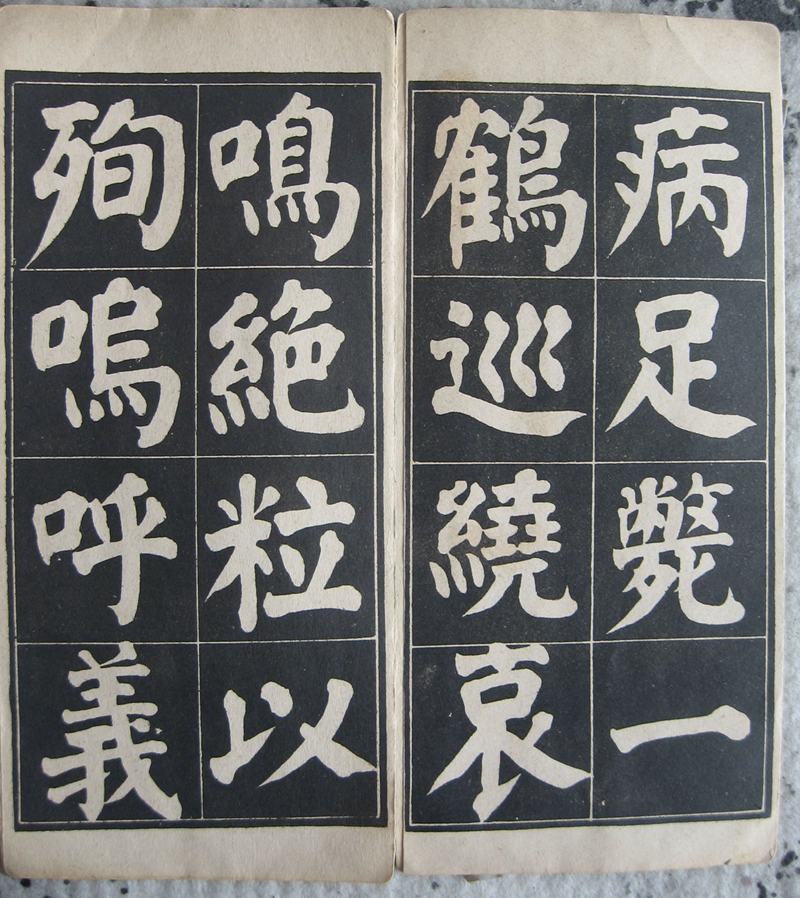 病足斃一
鶴巡繞哀
鳴絶粒以
殉嗚呼義